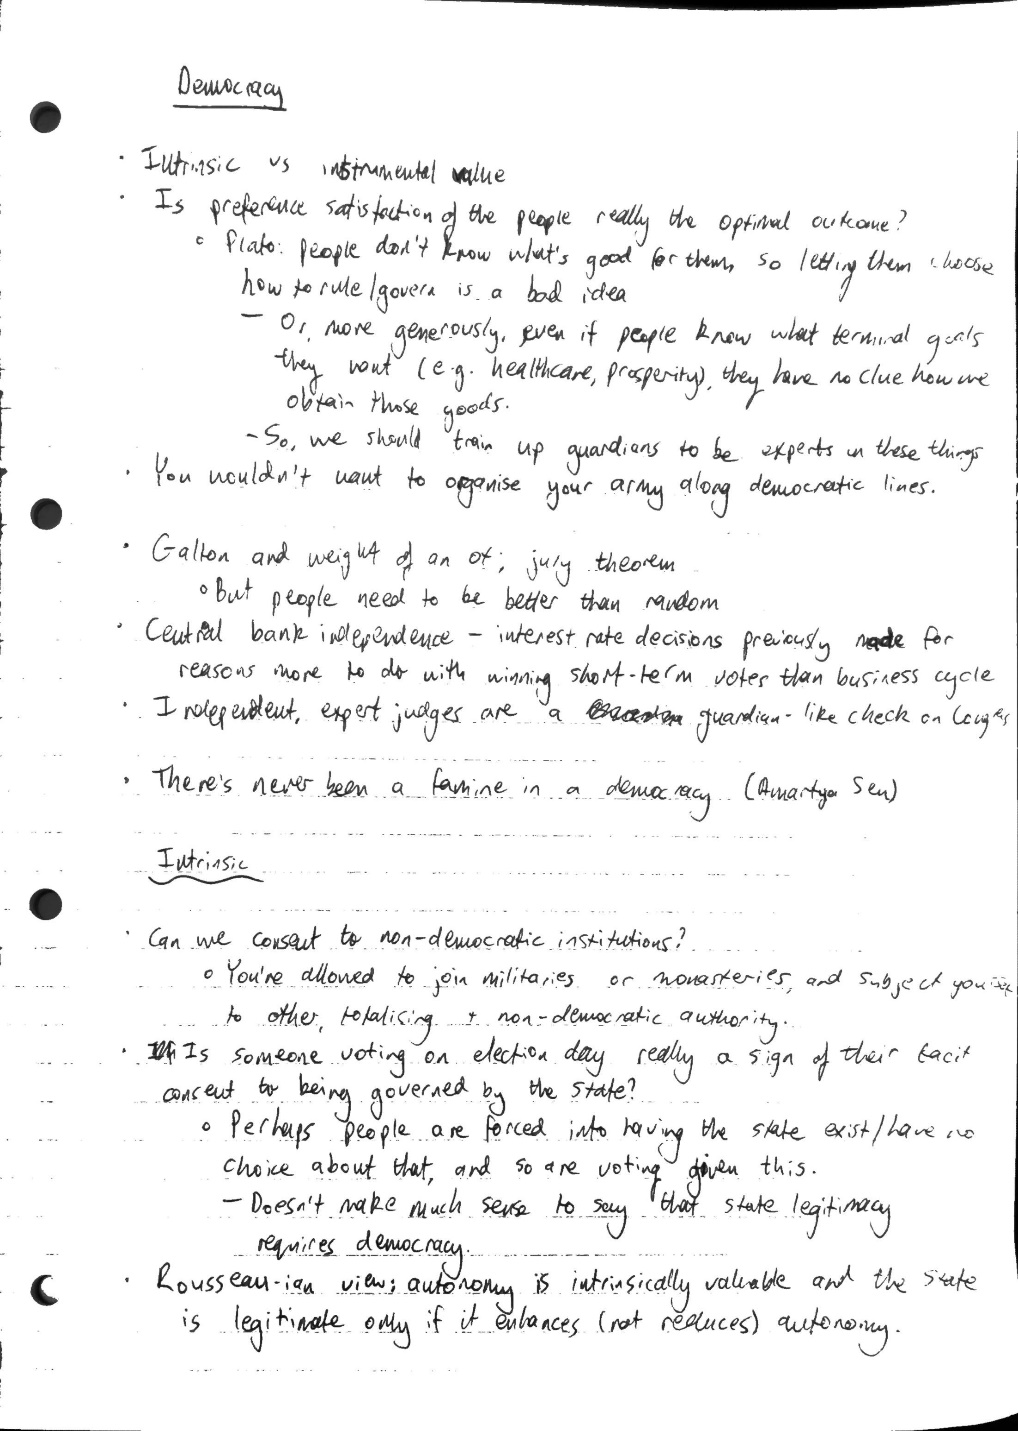 Democracy
· Intrinsic vs instrumental value
· Is preference satisfaction of the people really the optimal outcome?
∘ Plato: people don't know what's good for them, so letting them choose
how to rule/govern is a bad idea
– Or, more generously, even if people know what terminal goals
they want (e.g. healthcare, prosperity), they have no clue how we
obtain those goods.
- So, we should train up guardians to be experts in these things
· You wouldn't want to organise your army along democratic lines.
· Galton and weight of an ox; jury theorem
∘ But people need to be better than random
· Central bank independence – interest rate decisions previously made for
reasons more to do with winning short-term votes than business cycle
· Independent, expert judges are a guardian-like check on
· There's never been a famine in a democracy (Amartya Sen)
Intrinsic
· Can we consent to non-democratic institutions?
∘ You're allowed to join militaries or monasteries, and subject
to other, totalising + non-democratic authority.
· Is someone voting on election day really a sign of their tacit
consent to being governed by the state?
∘ Perhaps people are forced into having the state exist/have no
choice about that, and so are voting given this.
– Doesn't make much sense to say that state legitimacy
requires democracy.
· Rousseau-ian view: autonomy is intrinsically valuable and the state
is legitimate only if it enhances (not reduces) autonomy.